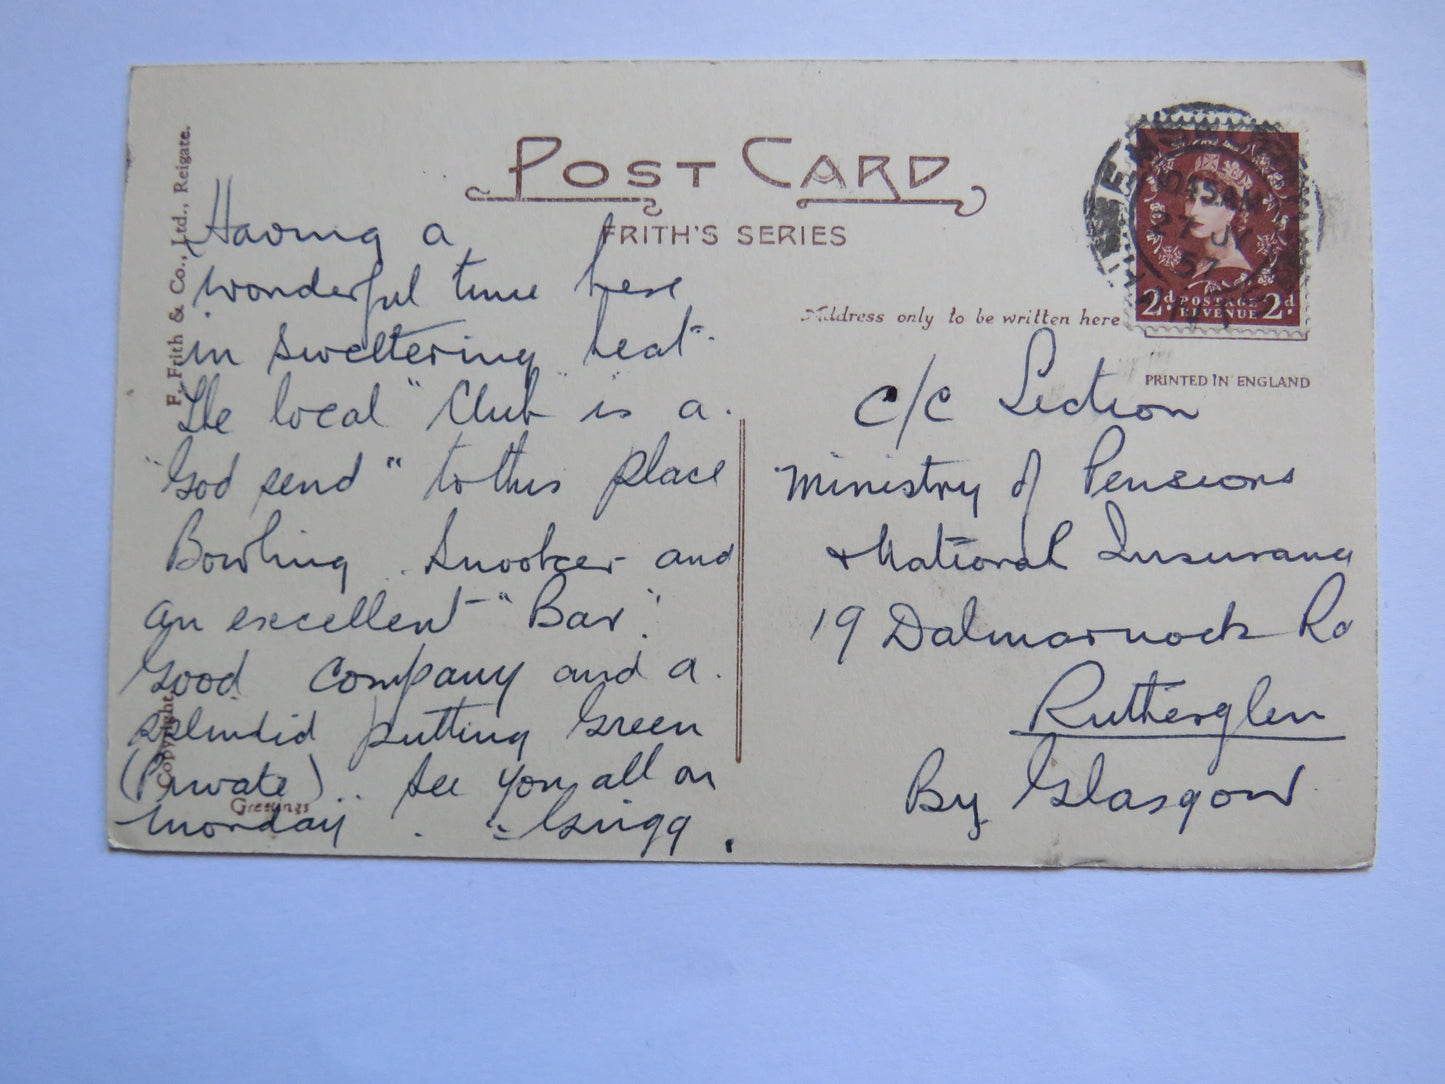 POST CARD
FRITH'S SERIES
F. Frith & Co., Ltd., Reigate.
Copyright
Greetings
Having a
wonderful time here
in sweltering heat.
The local "Club" is a.
"God send" to this place
Bowling . Snooker and
an excellent "Bar".
Good company and a.
splendid putting Green
(Private) .. See you all on
Monday . - Grigg .
Address only to be written here
10 45 AM
27 JY
57
2d. POSTAGE REVENUE 2d.
PRINTED IN ENGLAND
C/C Section
Ministry of Pensions
& National Insurance
19 Dalmarnock Rd
Rutherglen
By Glasgow